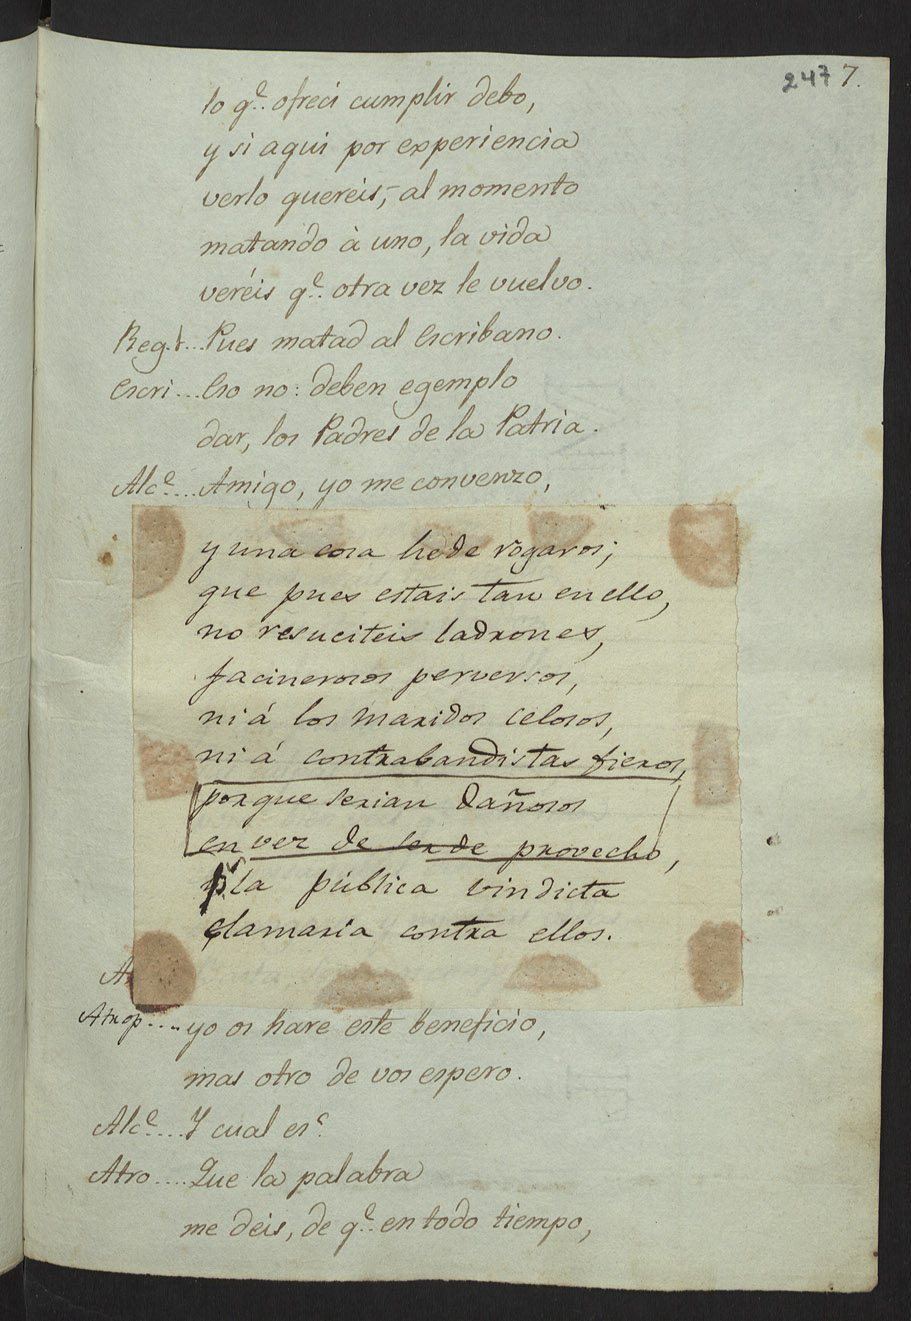 247 7.
lo q.e ofreci cumplir debo,
y si aqui por experiencia
verlo queréis, al momento
matando à uno, la vida
veréis q.e otra vez le vuelvo.
Reg.r... Pues matad al Escribano.
Escri... Eso no: deben egemplo
dar, los Padres de la Patria.
Alc.e... Amigo, yo me convenzo,
y una cosa he de rogaros;
que pues estais tan en ello,
no resuciteis ladrones,
facinerosos perversos,
ni á los maridos celosos,
ni á contrabandistas fieros,
porque serian dañosos
en vez de ser de provecho,
la pública vindicta
clamaria contra ellos.
Atrop.... yo os hare este beneficio,
mas otro de vos espero.
Alc.e.... Y cual es?
Atro.... Que la palabra
me deis, de q.e en todo tiempo,